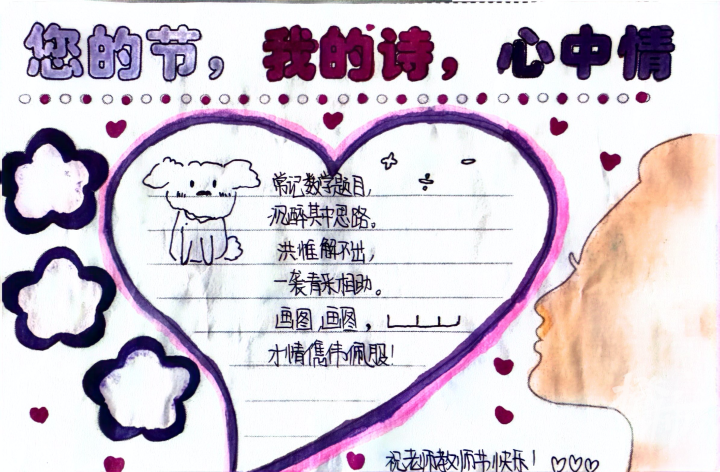 您的节，我的诗，心中情
常记数学题目，
沉醉其中思路。
洪惟解不出，
一袭青采相助。
画图，画图，
才情儁伟佩服！
祝老师教师节快乐！